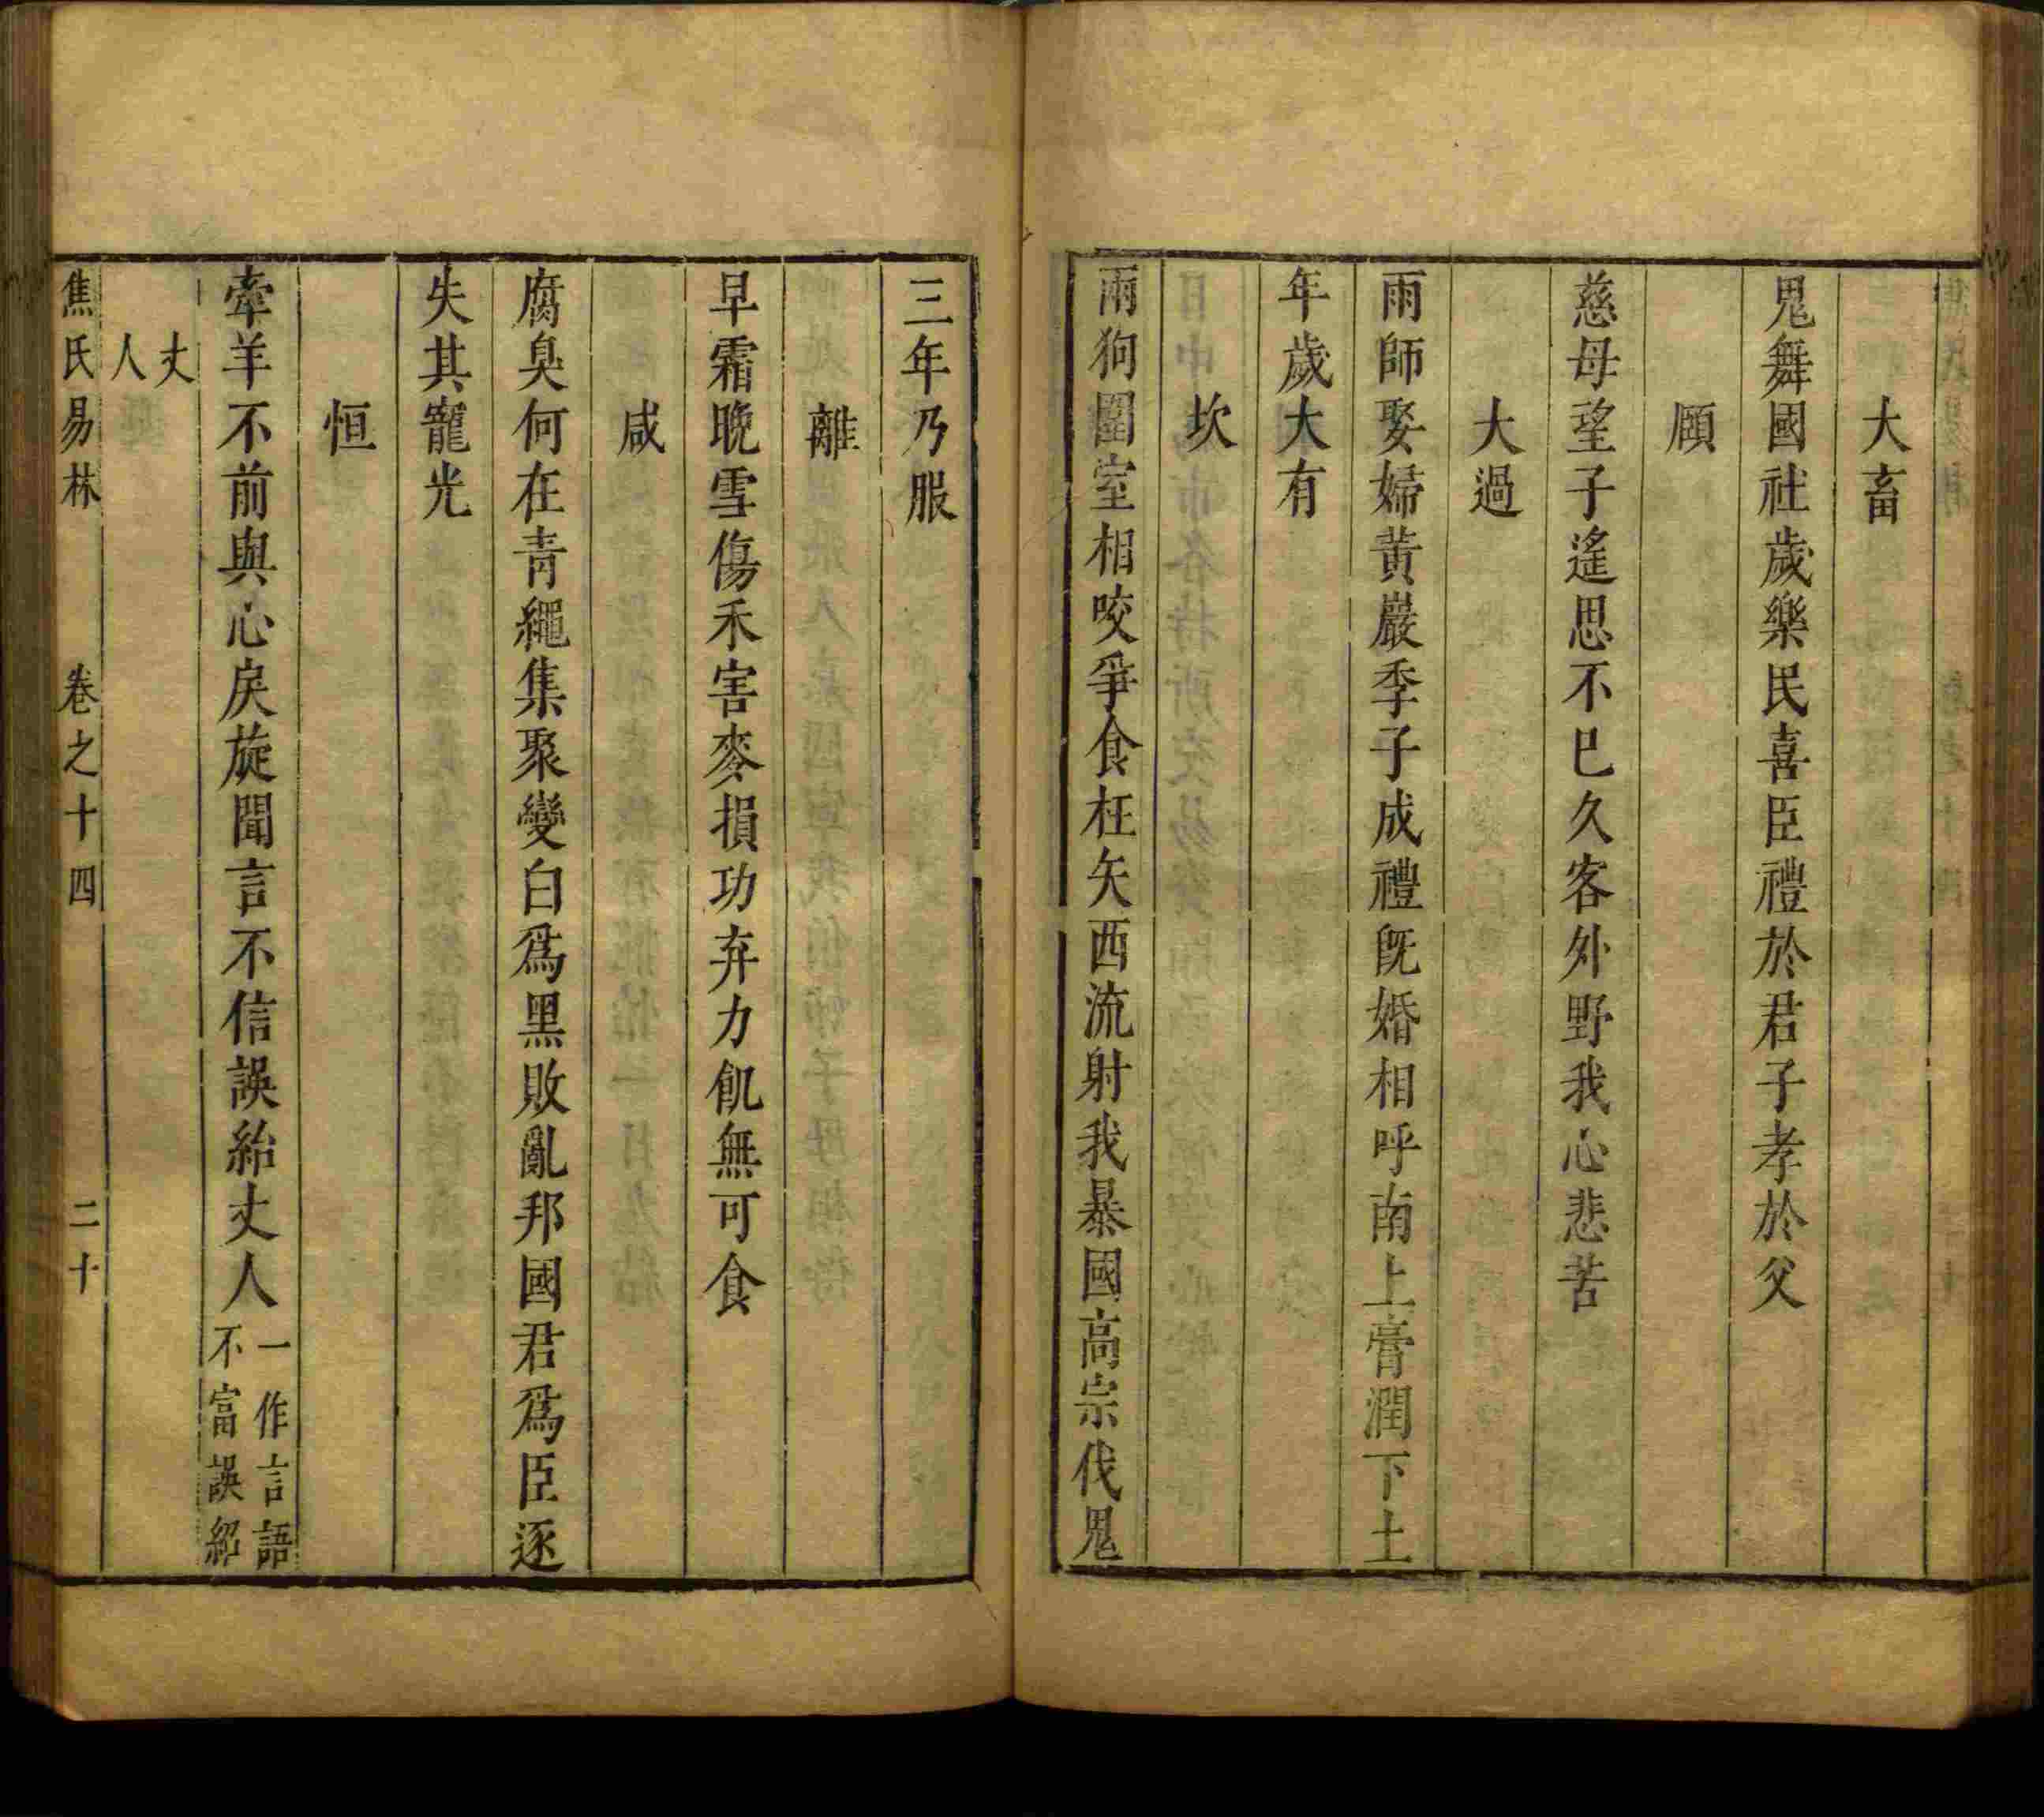 大畜
鬼舞國社歲樂民喜臣禮於君子孝於父
頤
慈母望子遙思不已久客外野我心悲苦
大過
雨師娶婦黃巖季子成禮旣婚相呼南上膏潤下土
年歲大有
坎
兩狗圖室相咬爭食枉矢西流射我暴國高宗伐鬼
三年乃服
離
早霜晚雪傷禾害麥損功弃力飢無可食
咸
腐臭何在青繩集聚變白爲黑敗亂邦國君爲臣逐
失其寵光
恒
牽羊不前與心戾旋聞言不信誤紿丈人
一作言語
不富誤紹
丈
人
焦氏易林 卷之十四 二十